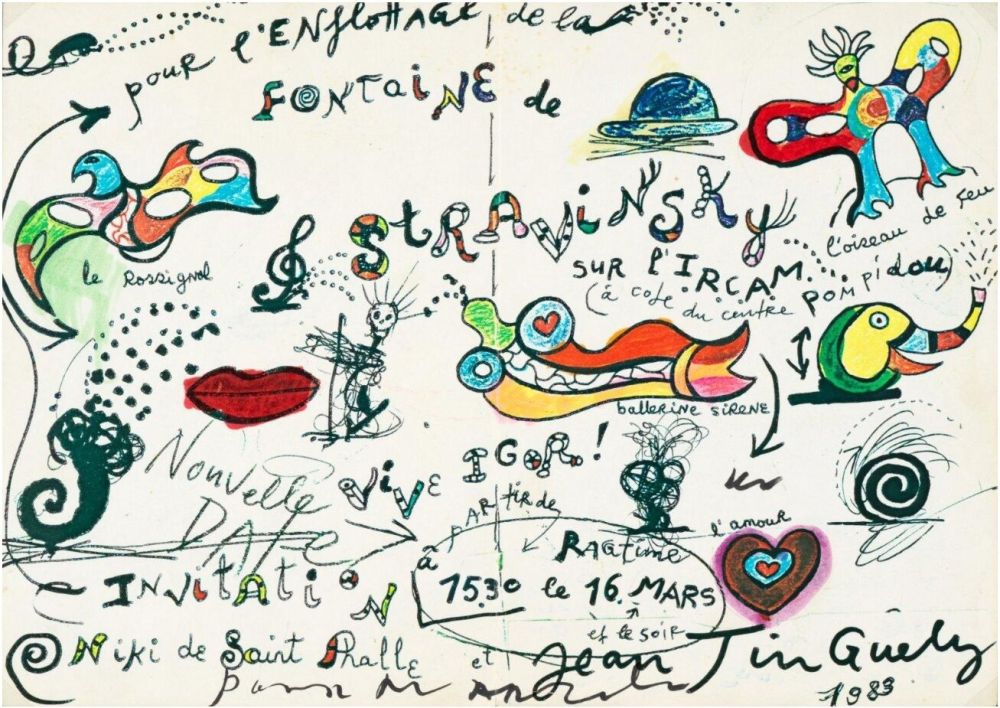 pour l'ENflottage de la
FONTaiNE de
STRAViNSky
l'oiseau de feu
le Rossignol
sur l'IRCAM.
(à coté du centre POMPidou)
ballerine sirene
Nouvelle
DATE
ViVE IGOR..!
PARtir de
l'amour
à
RAGtime
15.30 le 16. MARS
et le soir
INVitAtiON
Niki de Saint Phalle et Jean TinGuely
1983